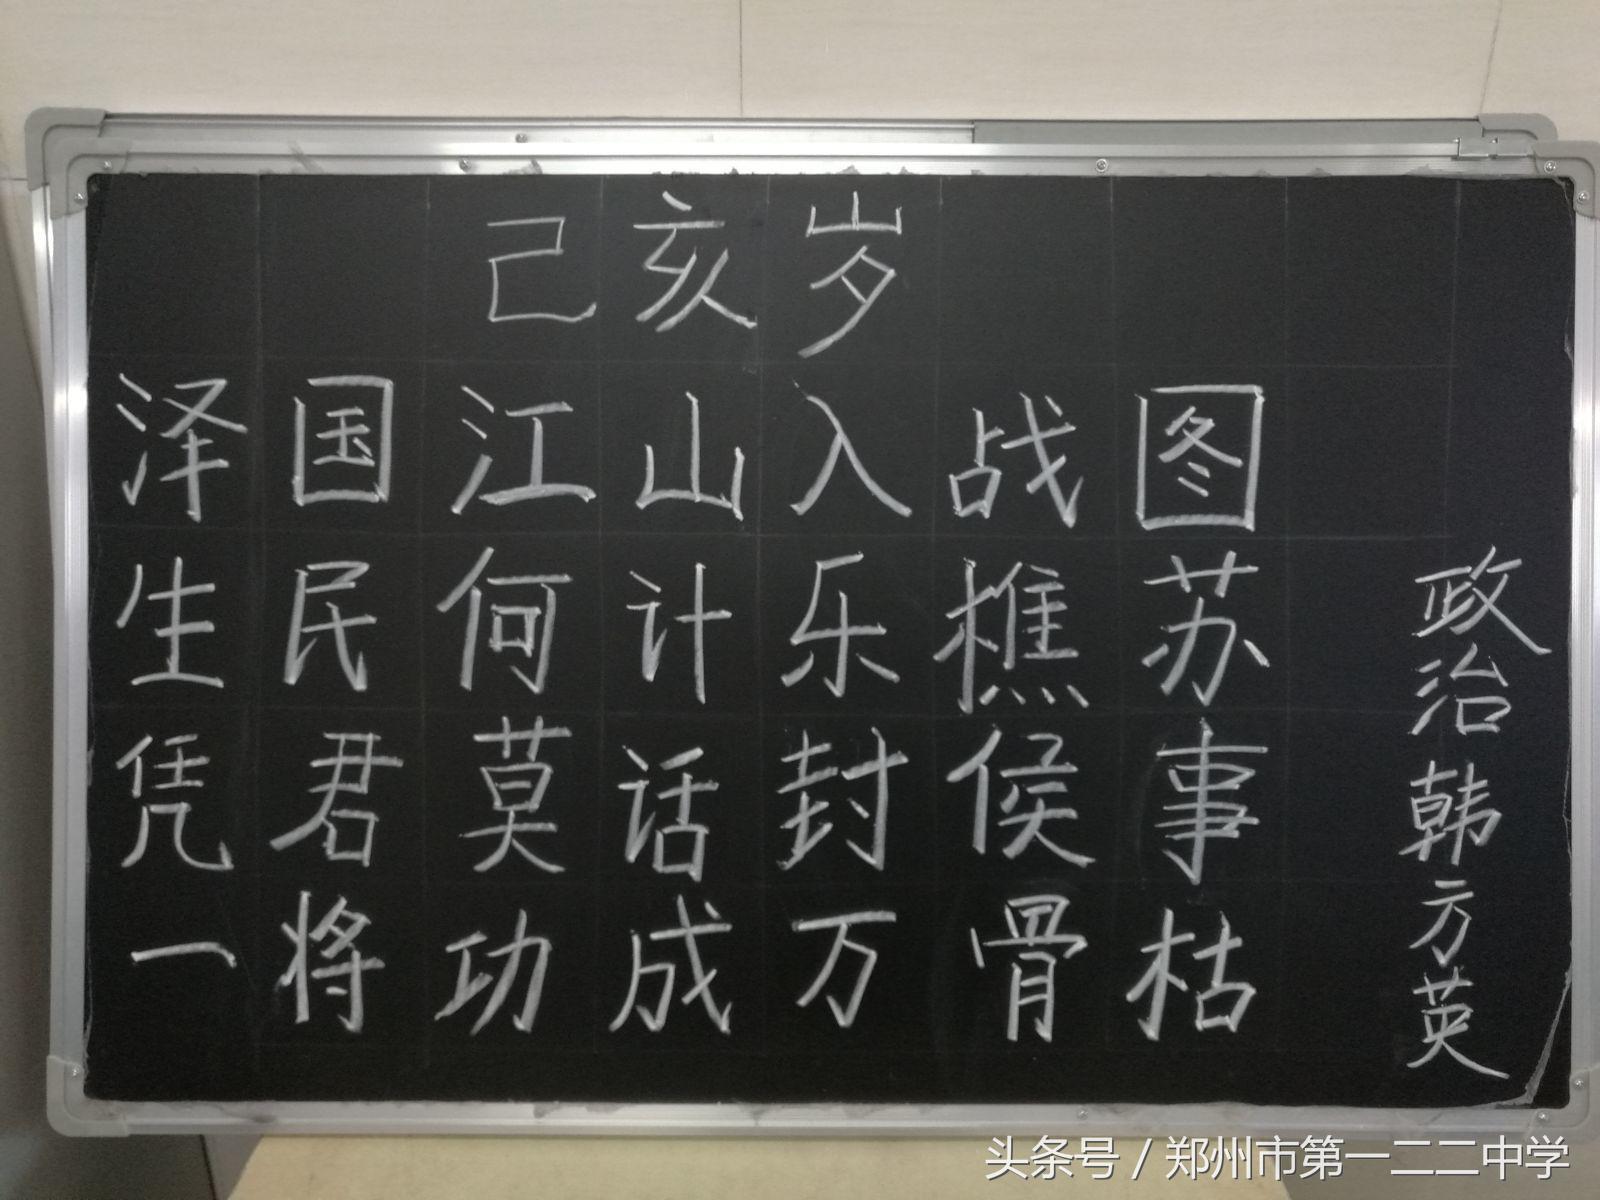 己亥岁
泽国江山入战图
生民何计乐樵苏
凭君莫话封侯事
一将功成万骨枯
政治韩方英
头条号 / 郑州市第一二二中学